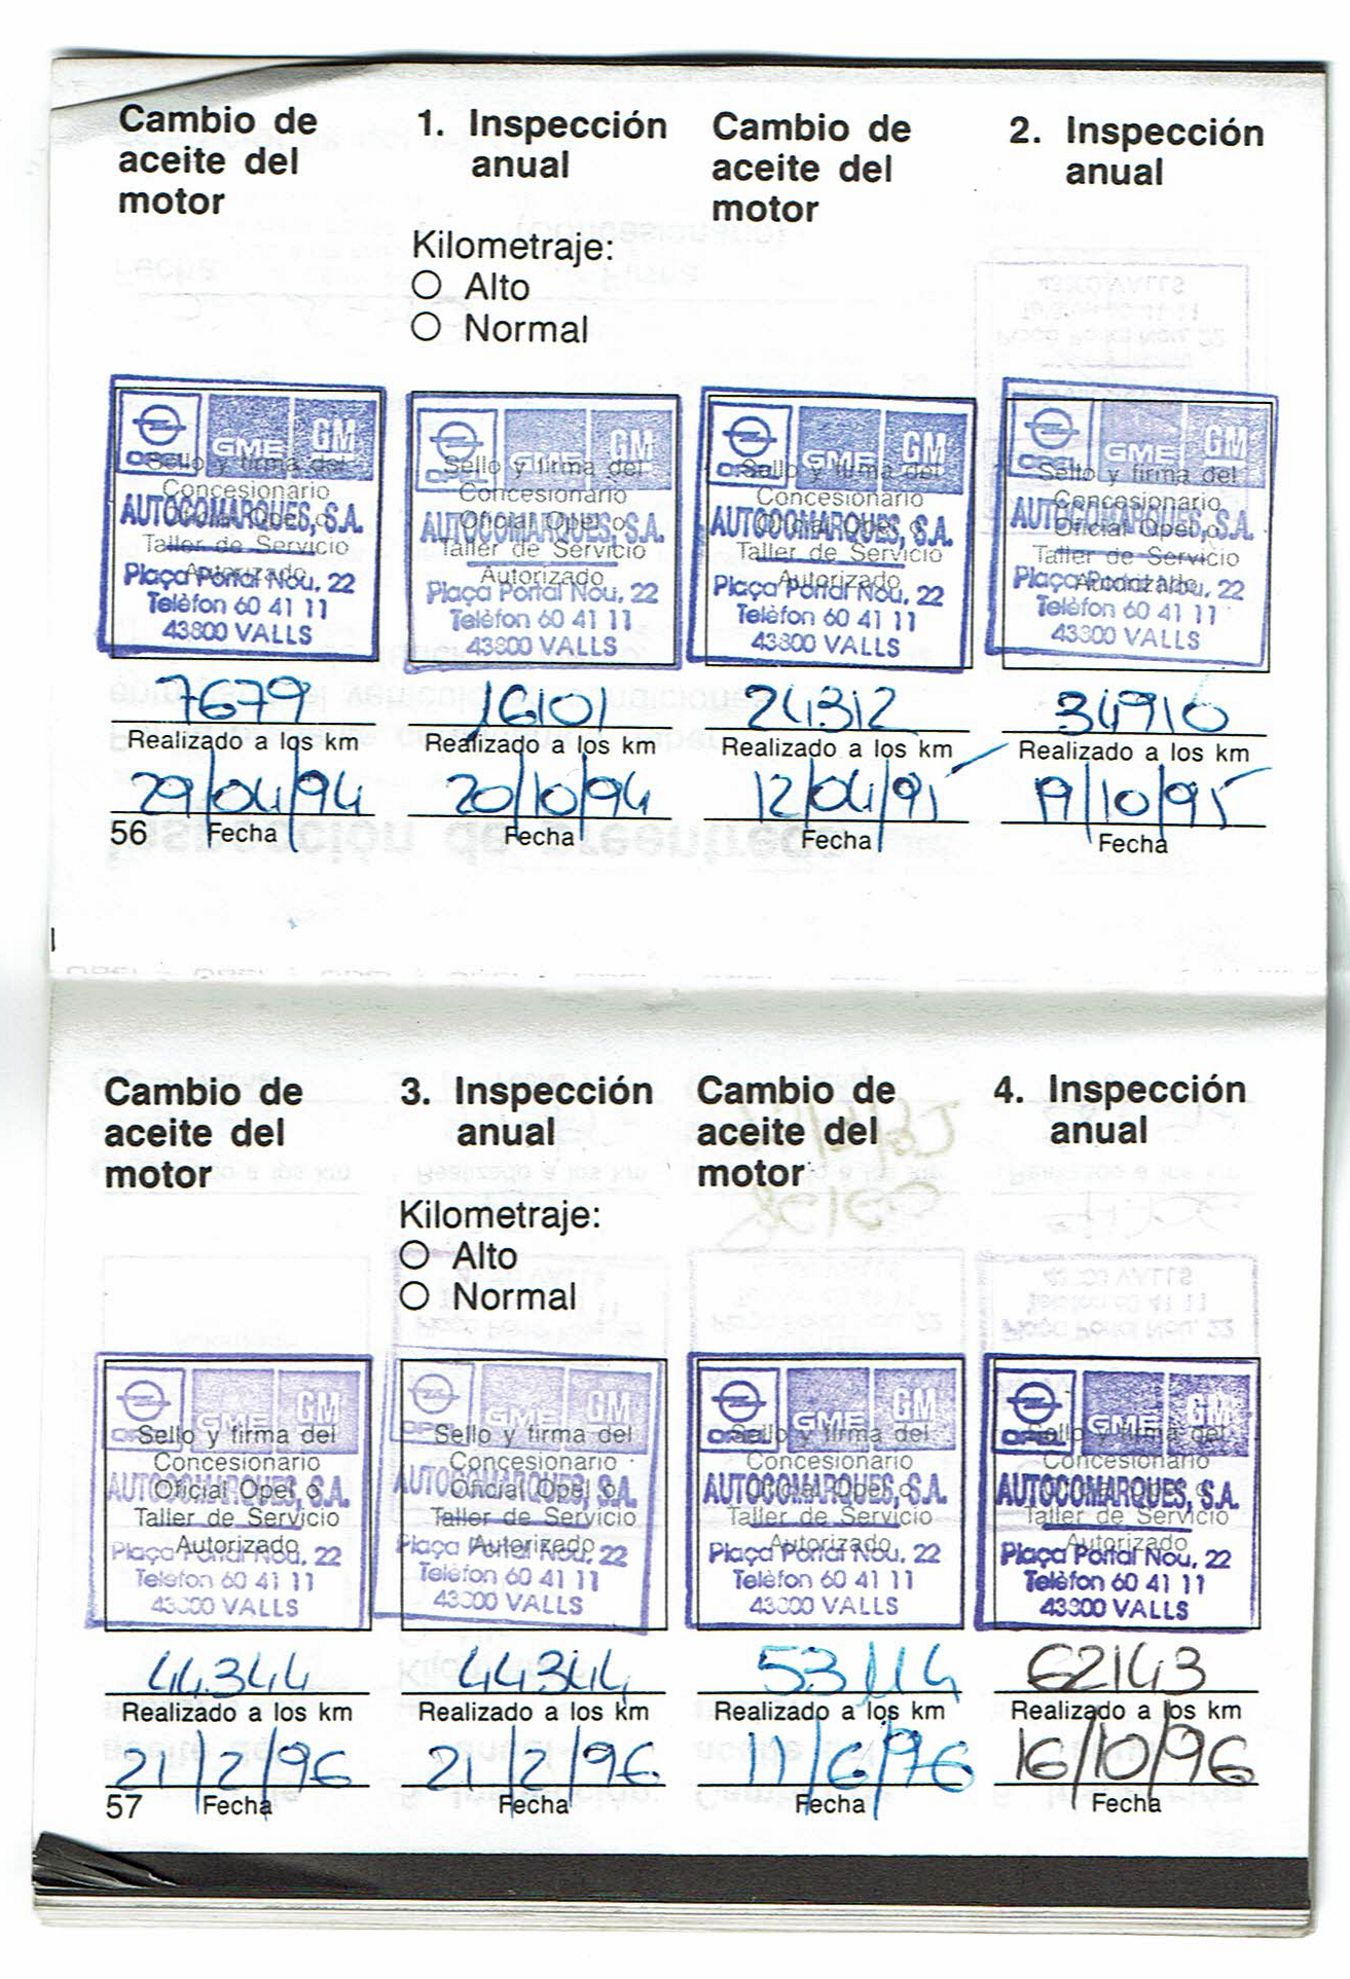 Cambio de
aceite del
motor
1. Inspección
anual
Kilometraje:
Alto
Normal
Cambio de
aceite del
motor
2. Inspección
anual
OPEL GME GM
Sello y firma del
Concesionario
Oficial Opel o
Taller de Servicio
Autorizado
AUTOCOMARQUES, S.A.
Plaça Portal Nou, 22
Telèfon 60 41 11
43800 VALLS
7679
Realizado a los km
29/04/94
Fecha
OPEL GME GM
Sello y firma del
Concesionario
Oficial Opel o
Taller de Servicio
Autorizado
AUTOCOMARQUES, S.A.
Plaça Portal Nou, 22
Telèfon 60 41 11
43800 VALLS
16101
Realizado a los km
20/10/94
Fecha
OPEL GME GM
Sello y firma del
Concesionario
Oficial Opel o
Taller de Servicio
Autorizado
AUTOCOMARQUES, S.A.
Plaça Portal Nou, 22
Telèfon 60 41 11
43800 VALLS
24312
Realizado a los km
12/04/95
Fecha
OPEL GME GM
Sello y firma del
Concesionario
Oficial Opel o
Taller de Servicio
Autorizado
AUTOCOMARQUES, S.A.
Plaça Portal Nou, 22
Telèfon 60 41 11
43800 VALLS
34910
Realizado a los km
19/10/95
Fecha
56
Cambio de
aceite del
motor
3. Inspección
anual
Kilometraje:
Alto
Normal
Cambio de
aceite del
motor
4. Inspección
anual
OPEL GME GM
Sello y firma del
Concesionario
Oficial Opel o
Taller de Servicio
Autorizado
AUTOCOMARQUES, S.A.
Plaça Portal Nou, 22
Telèfon 60 41 11
43800 VALLS
44344
Realizado a los km
21/2/96
Fecha
OPEL GME GM
Sello y firma del
Concesionario
Oficial Opel o
Taller de Servicio
Autorizado
AUTOCOMARQUES, S.A.
Plaça Portal Nou, 22
Telèfon 60 41 11
43800 VALLS
44344
Realizado a los km
21/2/96
Fecha
OPEL GME GM
Sello y firma del
Concesionario
Oficial Opel o
Taller de Servicio
Autorizado
AUTOCOMARQUES, S.A.
Plaça Portal Nou, 22
Telèfon 60 41 11
43800 VALLS
53114
Realizado a los km
11/6/96
Fecha
OPEL GME GM
Sello y firma del
Concesionario
Oficial Opel o
Taller de Servicio
Autorizado
AUTOCOMARQUES, S.A.
Plaça Portal Nou, 22
Telèfon 60 41 11
43800 VALLS
62143
Realizado a los km
16/10/96
Fecha
57